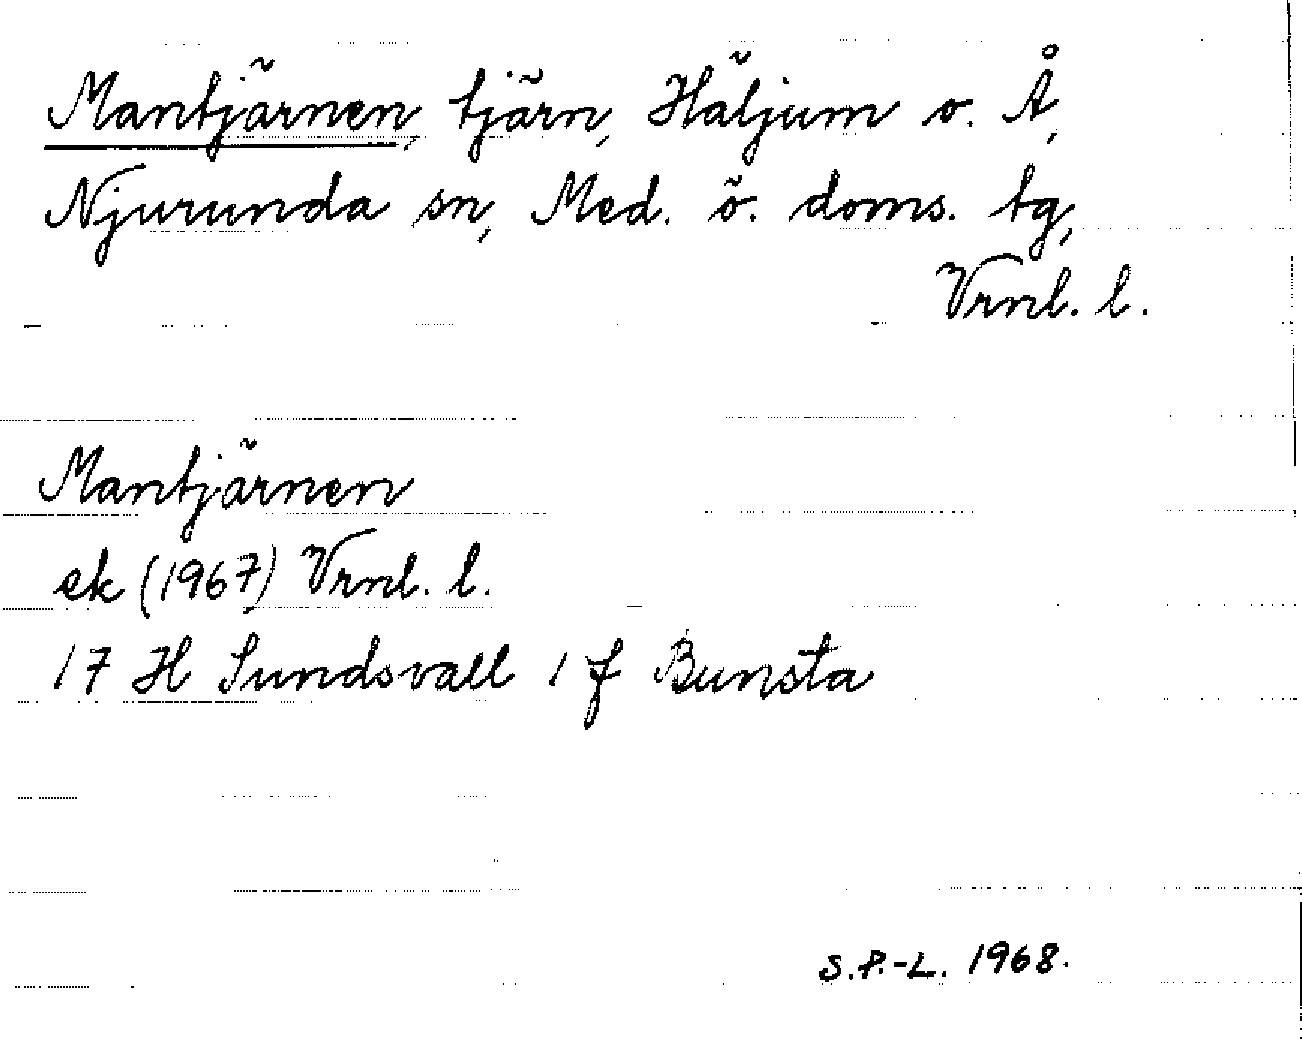 Mantjärnen, tjärn, Häljum o. Å,
Njurunda sn, Med. ö. doms. tg,
Vrnl. l.
Mantjärnen
ek (1967) Vrnl. l.
17 H Sundsvall 1 f Bunsta
S.P.-L. 1968.